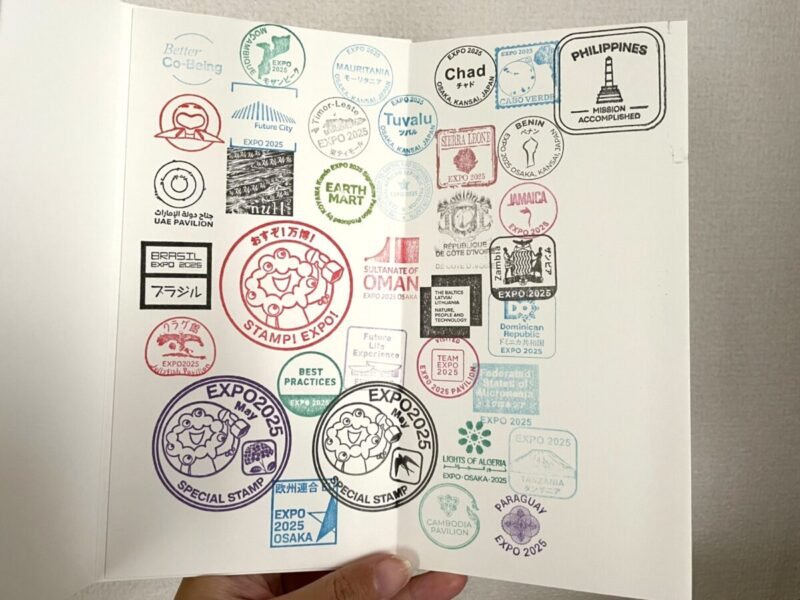 Better
Co-Being
MOÇAMBIQUE
EXPO
2025
モザンビーク
EXPO 2025
MAURITANIA
モーリタニア
OSAKA, KANSAI, JAPAN
Future City
EXPO 2025
Timor-Leste
EXPO 2025
東ティモール
EXPO 2025
Tuvalu
ツバル
OSAKA, KANSAI, JAPAN
جناح دولة الإمارات
UAE PAVILION
null²
EARTH
MART
BRASIL
EXPO 2025
ブラジル
おすぞ!万博!
STAMP! EXPO!
SULTANATE OF
OMAN
EXPO 2025 OSAKA
クラゲ館
EXPO2025
Jellyfish Pavilion
BEST
PRACTICES
EXPO 2025
Future
Life
Experience
EXPO2025
May
SPECIAL STAMP
EXPO2025
May
SPECIAL STAMP
欧州連合
EXPO
2025
OSAKA
EXPO 2025
Chad
チャド
OSAKA, KANSAI, JAPAN
CABO VERDE
PHILIPPINES
MISSION
ACCOMPLISHED
SIERRA LEONE
EXPO 2025
BENIN
ベナン
EXPO 2025 OSAKA, KANSAI, JAPAN
JAMAICA
EXPO 2025
RÉPUBLIQUE
DE CÔTE D'IVOIRE
Zambia
ザンビア
EXPO 2025
THE BALTICS
LATVIA/
LITHUANIA
NATURE,
PEOPLE AND
TECHNOLOGY
Dominican
Republic
ドミニカ共和国
EXPO 2025
VISITED
TEAM
EXPO
2025
EXPO 2025 PAVILION
Federated
States of
Micronesia
EXPO 2025
LIGHTS OF ALGERIA
EXPO·OSAKA·2025
EXPO 2025
TANZANIA
タンザニア
CAMBODIA
PAVILION
PARAGUAY
EXPO 2025